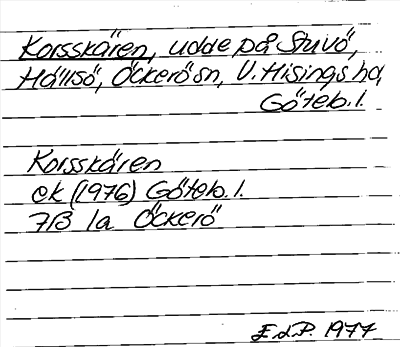 Korsskären, udde på Stuvö,
Hällsö, Öckerö sn, V. Hisings hd,
Göteb. l.
Korsskären
ek (1976) Göteb. l.
7B 1a Öckerö
1977